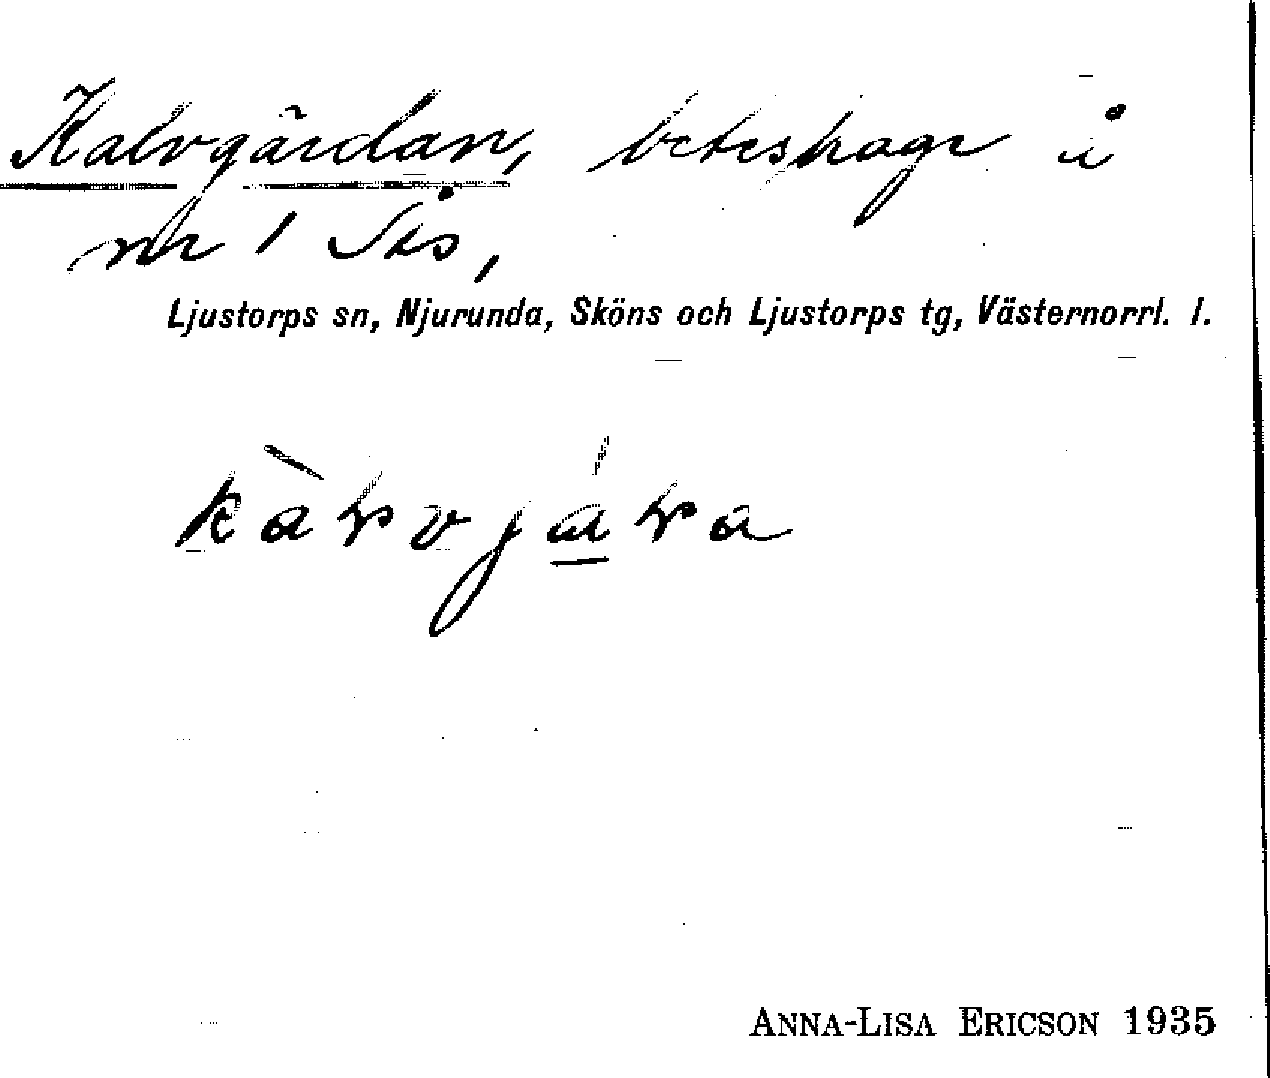 Kalvgärdan, beteshage å
nr 1 Sås,
Ljustorps sn, Njurunda, Sköns och Ljustorps tg, Västernorrl. l.
ANNA-LISA ERICSON 1935